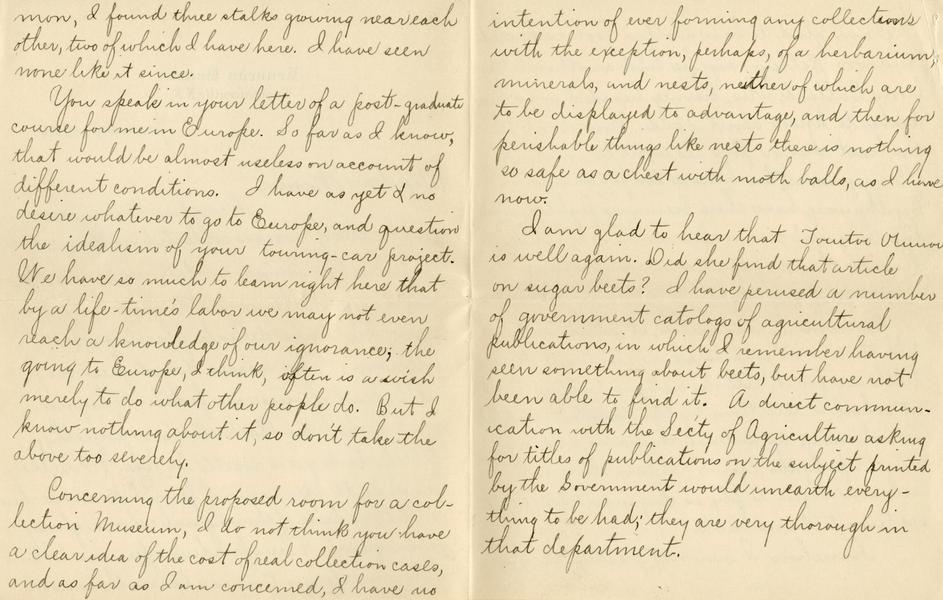 mon, I found three stalks growing near each
other, two of which I have here. I have seen
none like it since.
You speak in your letter of a post-graduate
course for me in Europe. So far as I know,
that would be almost useless on account of
different conditions. I have as yet & no
desire whatever to go to Europe, and question
the idealism of your touring-car project.
We have so much to learn right here that
by a life-time's labor we may not even
reach a knowledge of our ignorance; the
going to Europe, I think, often is a wish
merely to do what other people do. But I
know nothing about it, so don't take the
above too severely.
Concerning the proposed room for a col-
lection Museum, I do not think you have
a clear idea of the cost of real collection cases,
and as far as I am concerned, I have no
intention of ever forming any collections
with the exception, perhaps, of a herbarium,
minerals, and nests, neither of which are
to be displayed to advantage, and then for
perishable things like nests there is nothing
so safe as a chest with moth balls, as I have
now.
I am glad to hear that
is well again. Did she find that article
on sugar beets? I have perused a number
of government catologs of agricultural
publications, in which I remember having
seen something about beets, but have not
been able to find it. A direct commun-
ication with the Secty of Agriculture asking
for titles of publications on the subject printed
by the Government would unearth every-
thing to be had; they are very thorough in
that department.